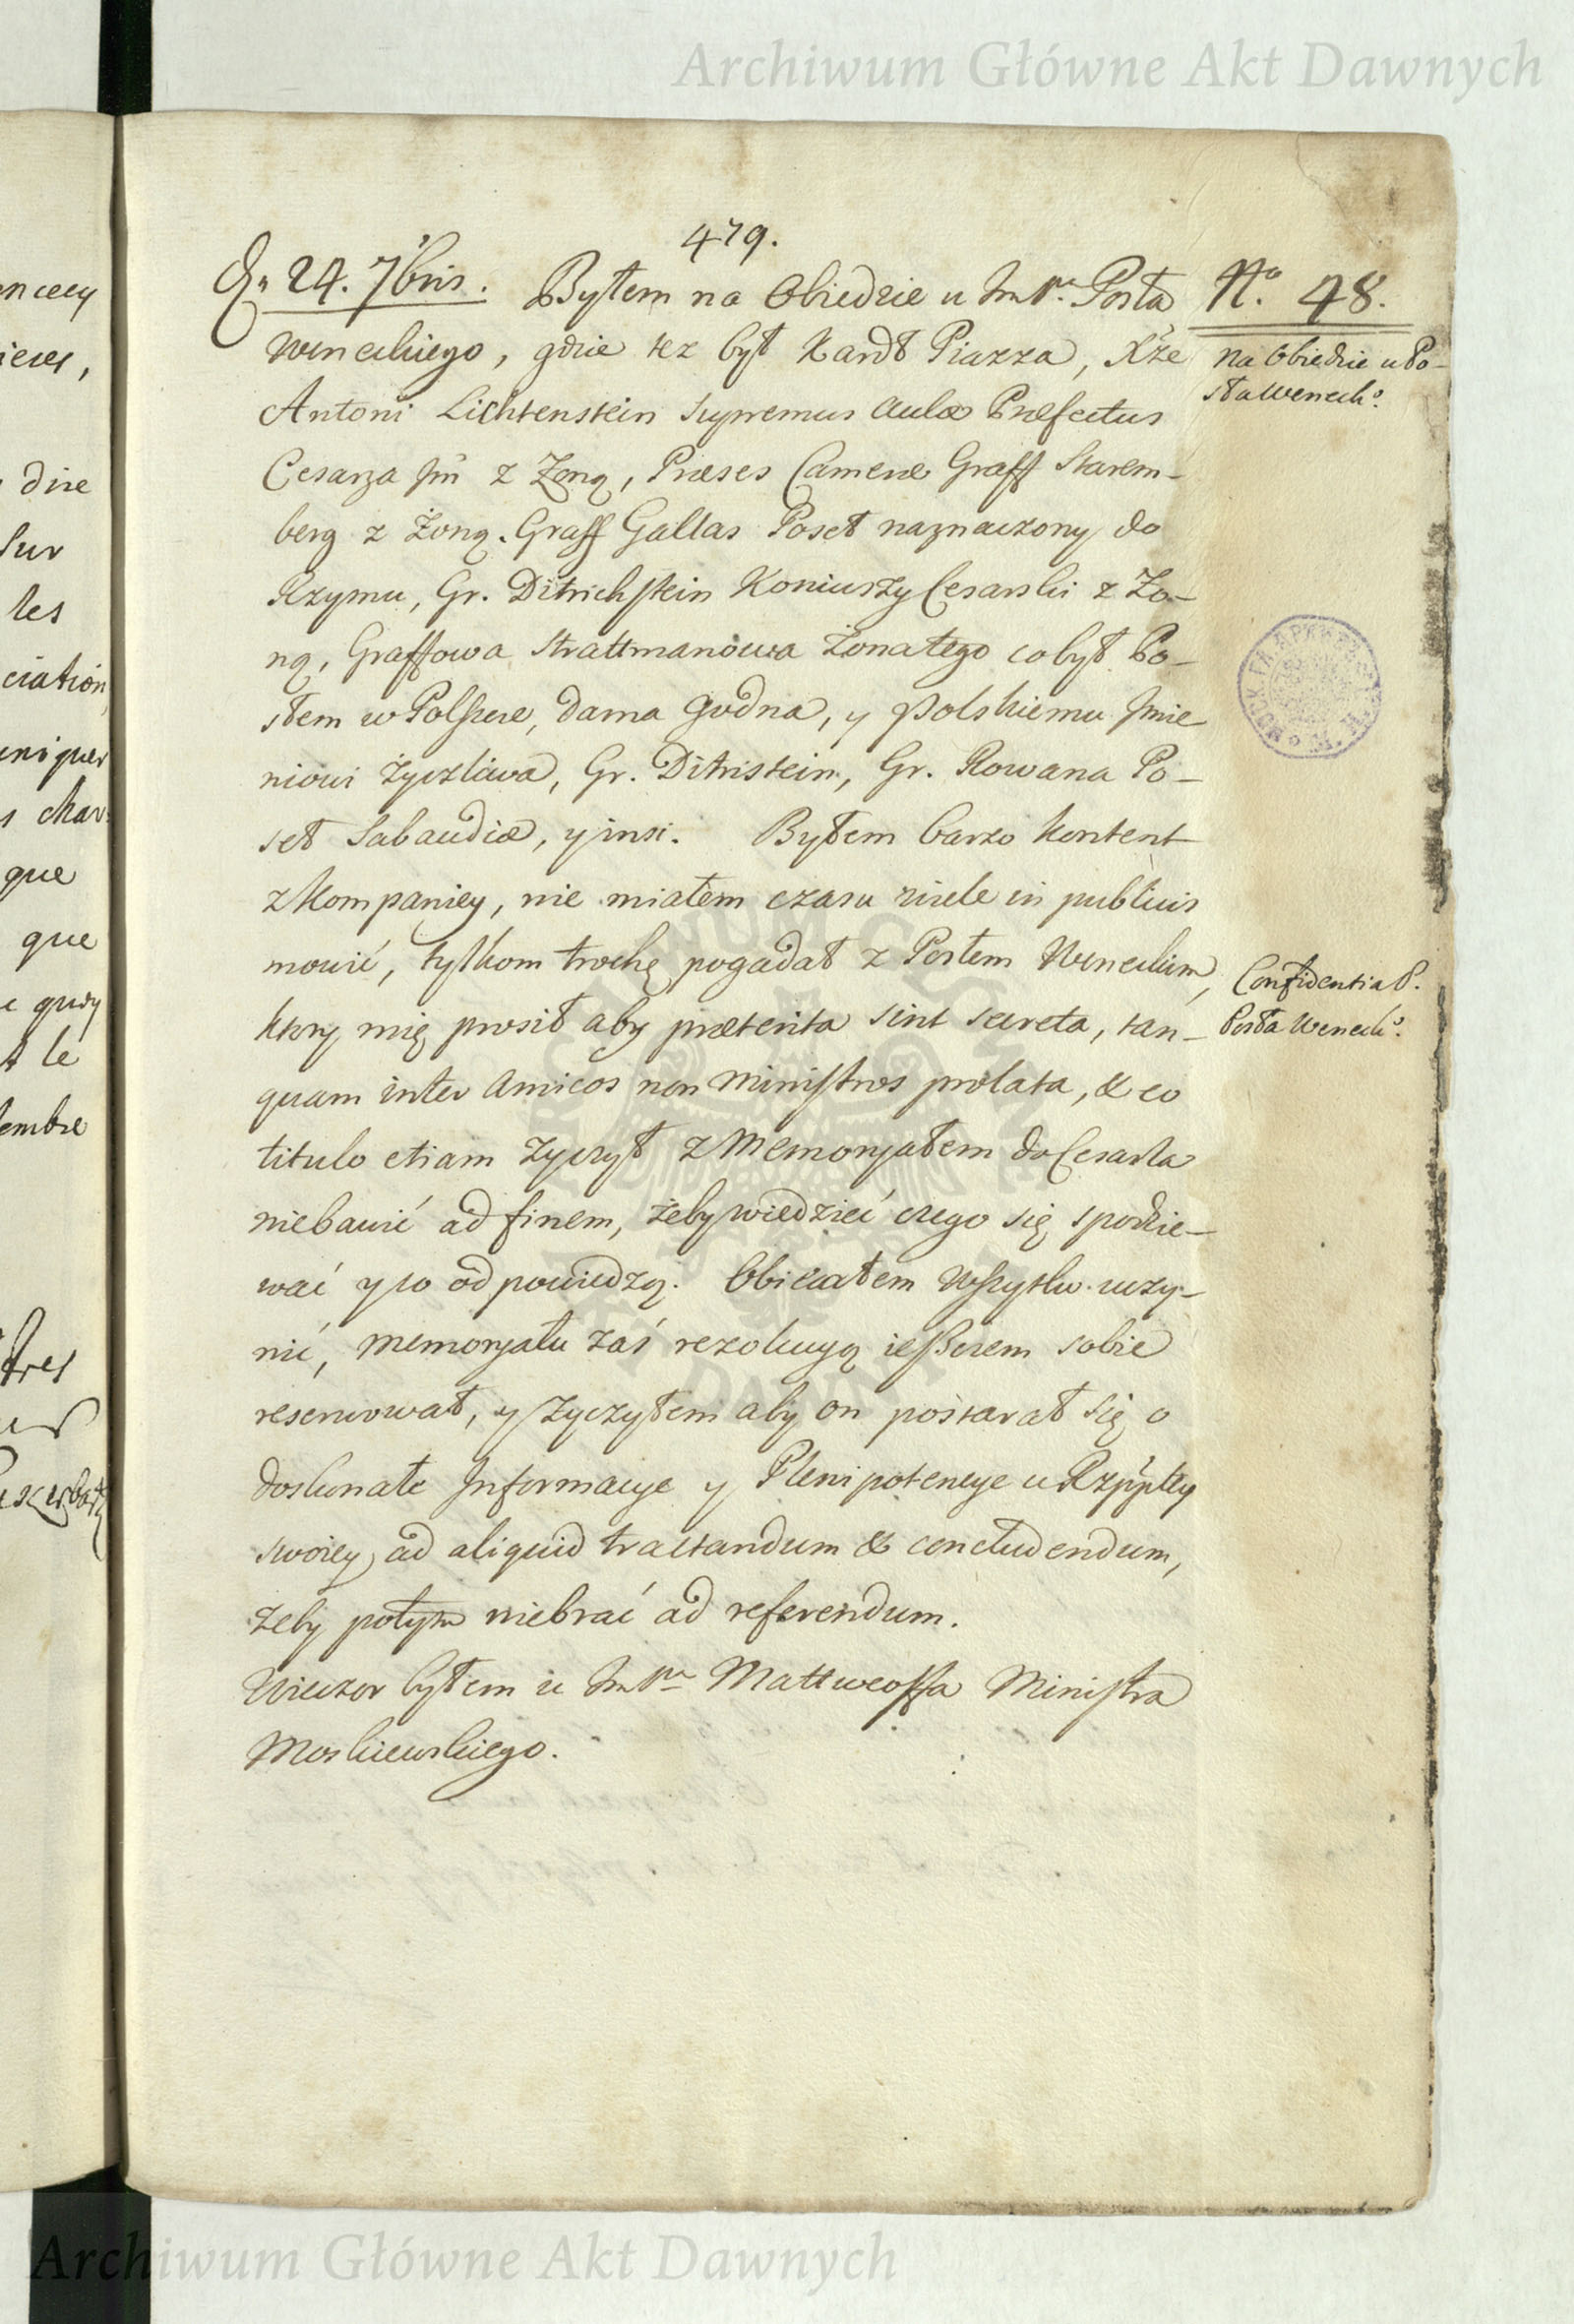 Archiwum Główne Akt Dawnych
479.
Dn 24. 7bris. Byłem na Obiedzie u ImPa Posła
Weneckiego, gdzie tez był Kardł Piazza, Xże
Antoni Lichtenstein Supremus Aulæ Præfectus
Cesarza Jm z Zoną, Præses Cameræ Graff Starem-
berg z Żoną. Graff Gallas Poseł naznaczony do
Rzymu, Gr. Ditrichstein Koniuszy Cesarski z Żo-
ną, Graffowa Strattmanowa Żonatego co był Po-
słem w Polszcze, Dama godna, y Polskiemu Jmie
niowi życzliwa, Gr. Ditristein, Gr. Rowana Po-
seł Sabaudiæ, y insi. Byłem barzo kontent
z kompaniey, nie miałem czasu wiele in publicis
mowić, tylkom trochę pogadał z Posłem Weneckim,
ktory mię prosił aby præterita sint secreta, tan-
quam inter Amicos non Ministros prolata, & eo
titulo etiam życzył z Memoryałem do Cesarza
niebawić ad finem, żeby wiedzieć czego się spodzie-
wać y co odpowiedzą. Obiecałem wszytko uczy-
nić, memoryału zaś rezolucyą ieszczem sobie
reserwował, y życzyłem aby on postarał się o
doskonałe Informacye y Plenipotencye u Rzpptey
swoiey ad aliquid tractandum & concludendum,
żeby potym niebrać ad referendum.
Wieczor byłem u ImPa Mattweoffa Ministra
Moskiewskiego.
No. 48.
Na Obiedzie u Po-
sła Wenecko.
Confidentia P.
Posła Wenecko.
Archiwum Główne Akt Dawnych